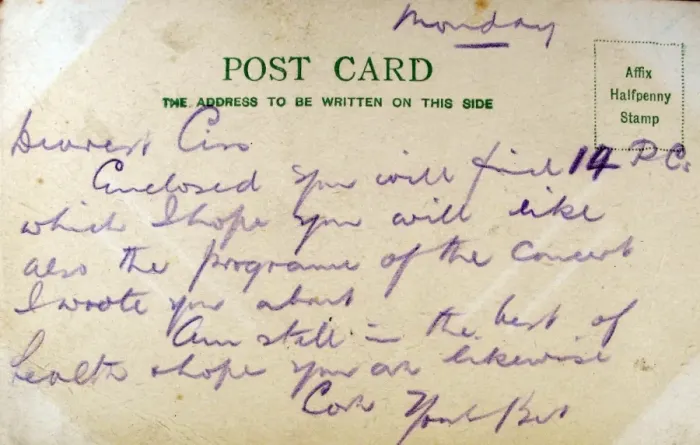 Monday
POST CARD
THE ADDRESS TO BE WRITTEN ON THIS SIDE
Affix
Halfpenny
Stamp
Dearest Ciss
Enclosed you will find 14 P.Cs
which I hope you will like
also the programe of the concert
I wrote you about
Am still in the best of
health & hope you are likewise